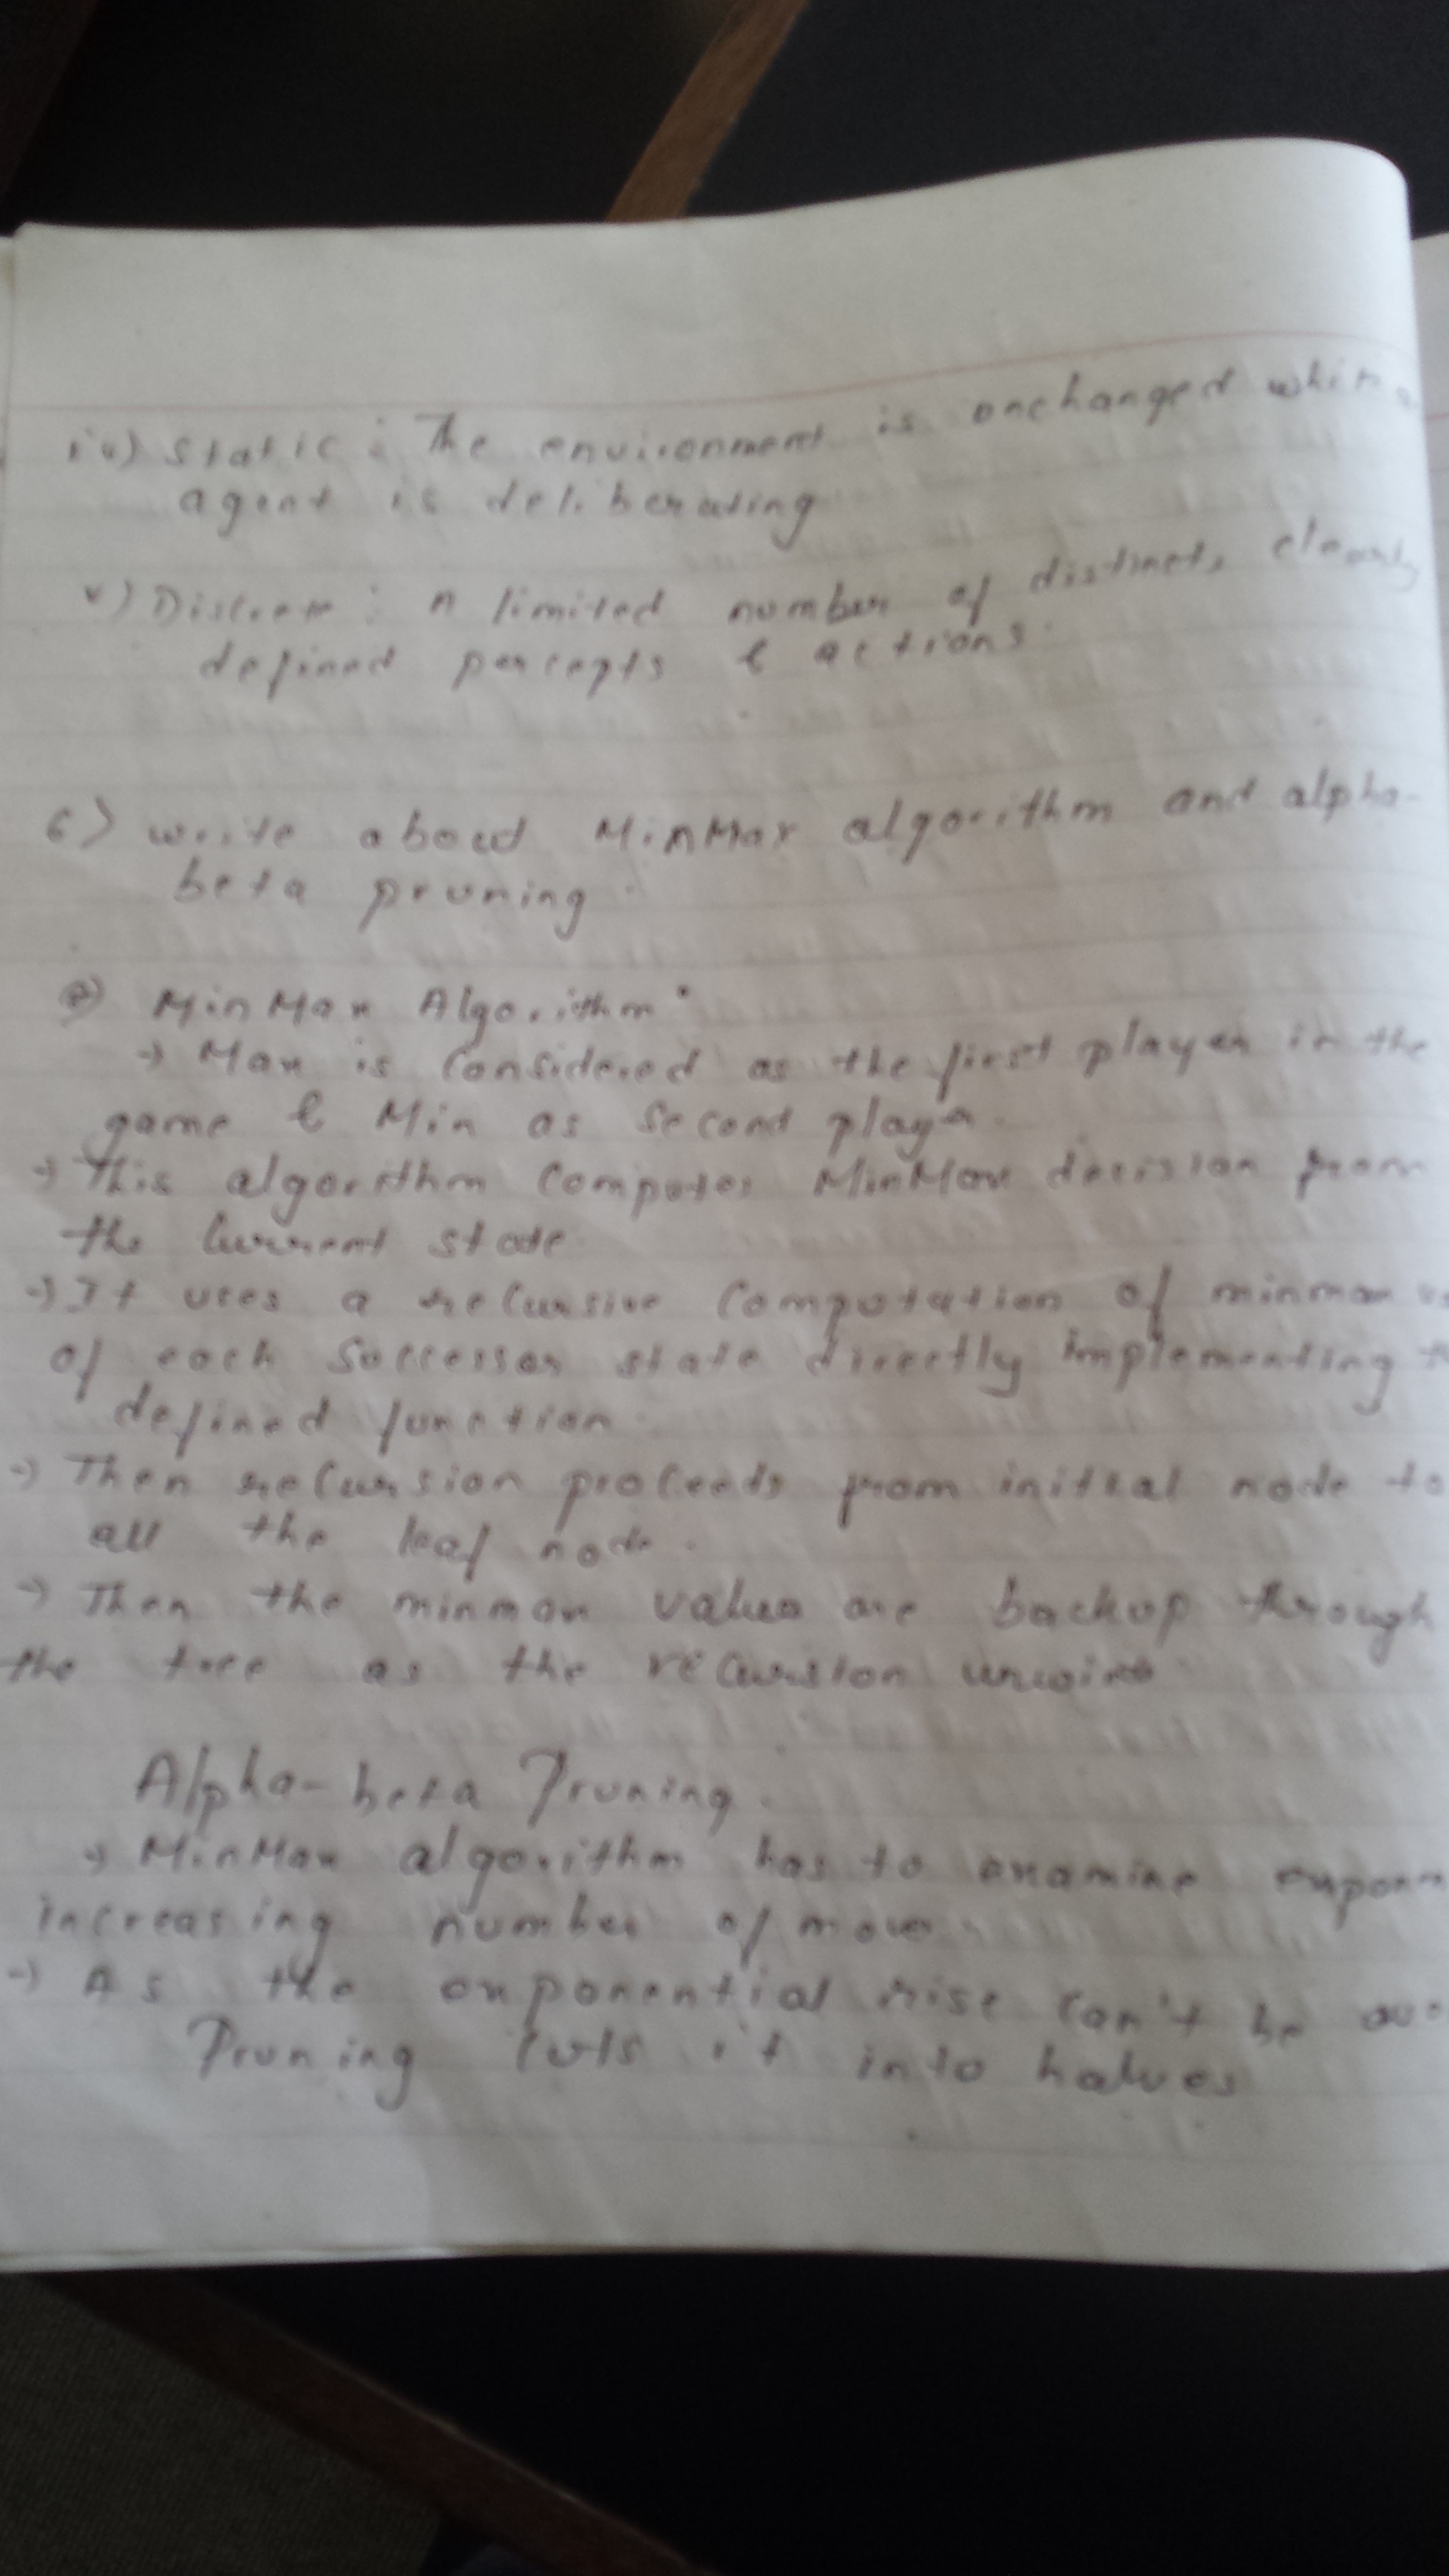 iv) Static : The environment is onchanged while
agent is deliberating
v) Discrete : A limited number of distinct, clearly
defined percepts & actions.
6) write about MinMax algorithm and alpha-
beta pruning.
MinMax Algorithm
→ Max is Considered as the first player in the
game & Min as Second player.
→ This algorithm Computes MinMax decision from
the Current state
→ It uses a recursive Computation of minmax
of each Successor state directly implementing
defined function.
→ Then recursion proceeds from initial node to
all the leaf node.
→ Then the minmax values are backup through
the tree as the recursion unwinds
Alpha-beta Pruning.
→ MinMax algorithm has to examine expon
increasing number of moves
→ As the exponential rise Can't be
Pruning Cuts it into halves